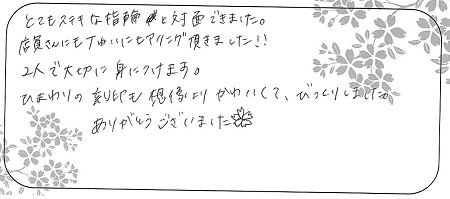 とてもステキな指輪と対面できました。
店員さんにもていねいにヒアリング頂きました!!
2人で大切に身につけます。
ひまわりの刻印も想像よりかわいくて、びっくりしました。
ありがとうございました